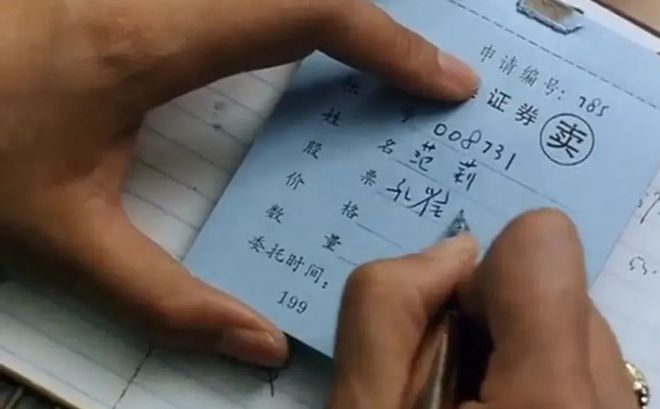 申请编号：785
证券 卖
号 008731
姓名 范莉
股票
价格
数量
委托时间：
199